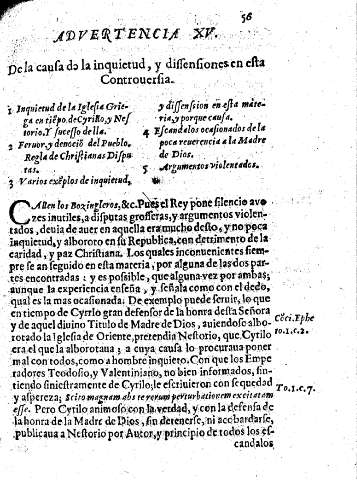 56
ADVERTENCIA XV.
De la causa da la inquietud, y dissensiones en esta
Controuersia.
1 Inquietud de la Iglesia Grie-
ga en tiẽpo de Cyrillo, y Nes
torio. Y sucesso della.
2 Feruor, y deuociõ del Pueblo.
Regla de Christianas Dispu
tas.
3 Varios exẽplos de inquietud,
y dissension en esta mate-
ria, y porque causa.
4 Escandalos ocasionados de la
poca reuerencia a la Madre
de Dios.
5 Argumentos violentados.
CAllen los Bozingleros, &c. Pues el Rey pone silencio a vo
zes inutiles, a disputas grosseras, y argumentos violen-
tados, deuia de auer en aquella era mucho desto, y no poca
inquietud, y alboroto en su Republica, con detrimento de la
caridad, y paz Christiana. Los quales inconuenientes siem-
pre se an seguido en esta materia, por alguna de las dos par-
tes encontradas: y es possible, que alguna vez por ambas;
aunque la experiencia enseña, y señala como con el dedo,
qual es la mas ocasionada. De exemplo puede seruir, lo que
en tiempo de Cyrilo gran defensor de la honra desta Señora
y de aquel diuino Titulo de Madre de Dios, auiendose albo-
rotado la Iglesia de Oriente, pretendia Nestorio, que Cyrilo
era el que la alborotaua; a cuya causa lo procuraua poner
mal con todos, como a hombre inquieto. Con que los Empe
radores Teodosio, y Valentiniano, no bien informados, sin-
tiendo siniestramente de Cyrilo; le escriuieron con sequedad
y aspereza; Scito magnam abs te rerum perturbationem excitatam
esse. Pero Cyrilo animoso con la verdad, y con la defensa de
la honra de la Madre de Dios, sin detenerse, ni acobardarse,
publicaua a Nestorio por Autor, y principio de todos los es-
candalos
Cõci. Ephe
to.1.c.2.
To.1.c.7.